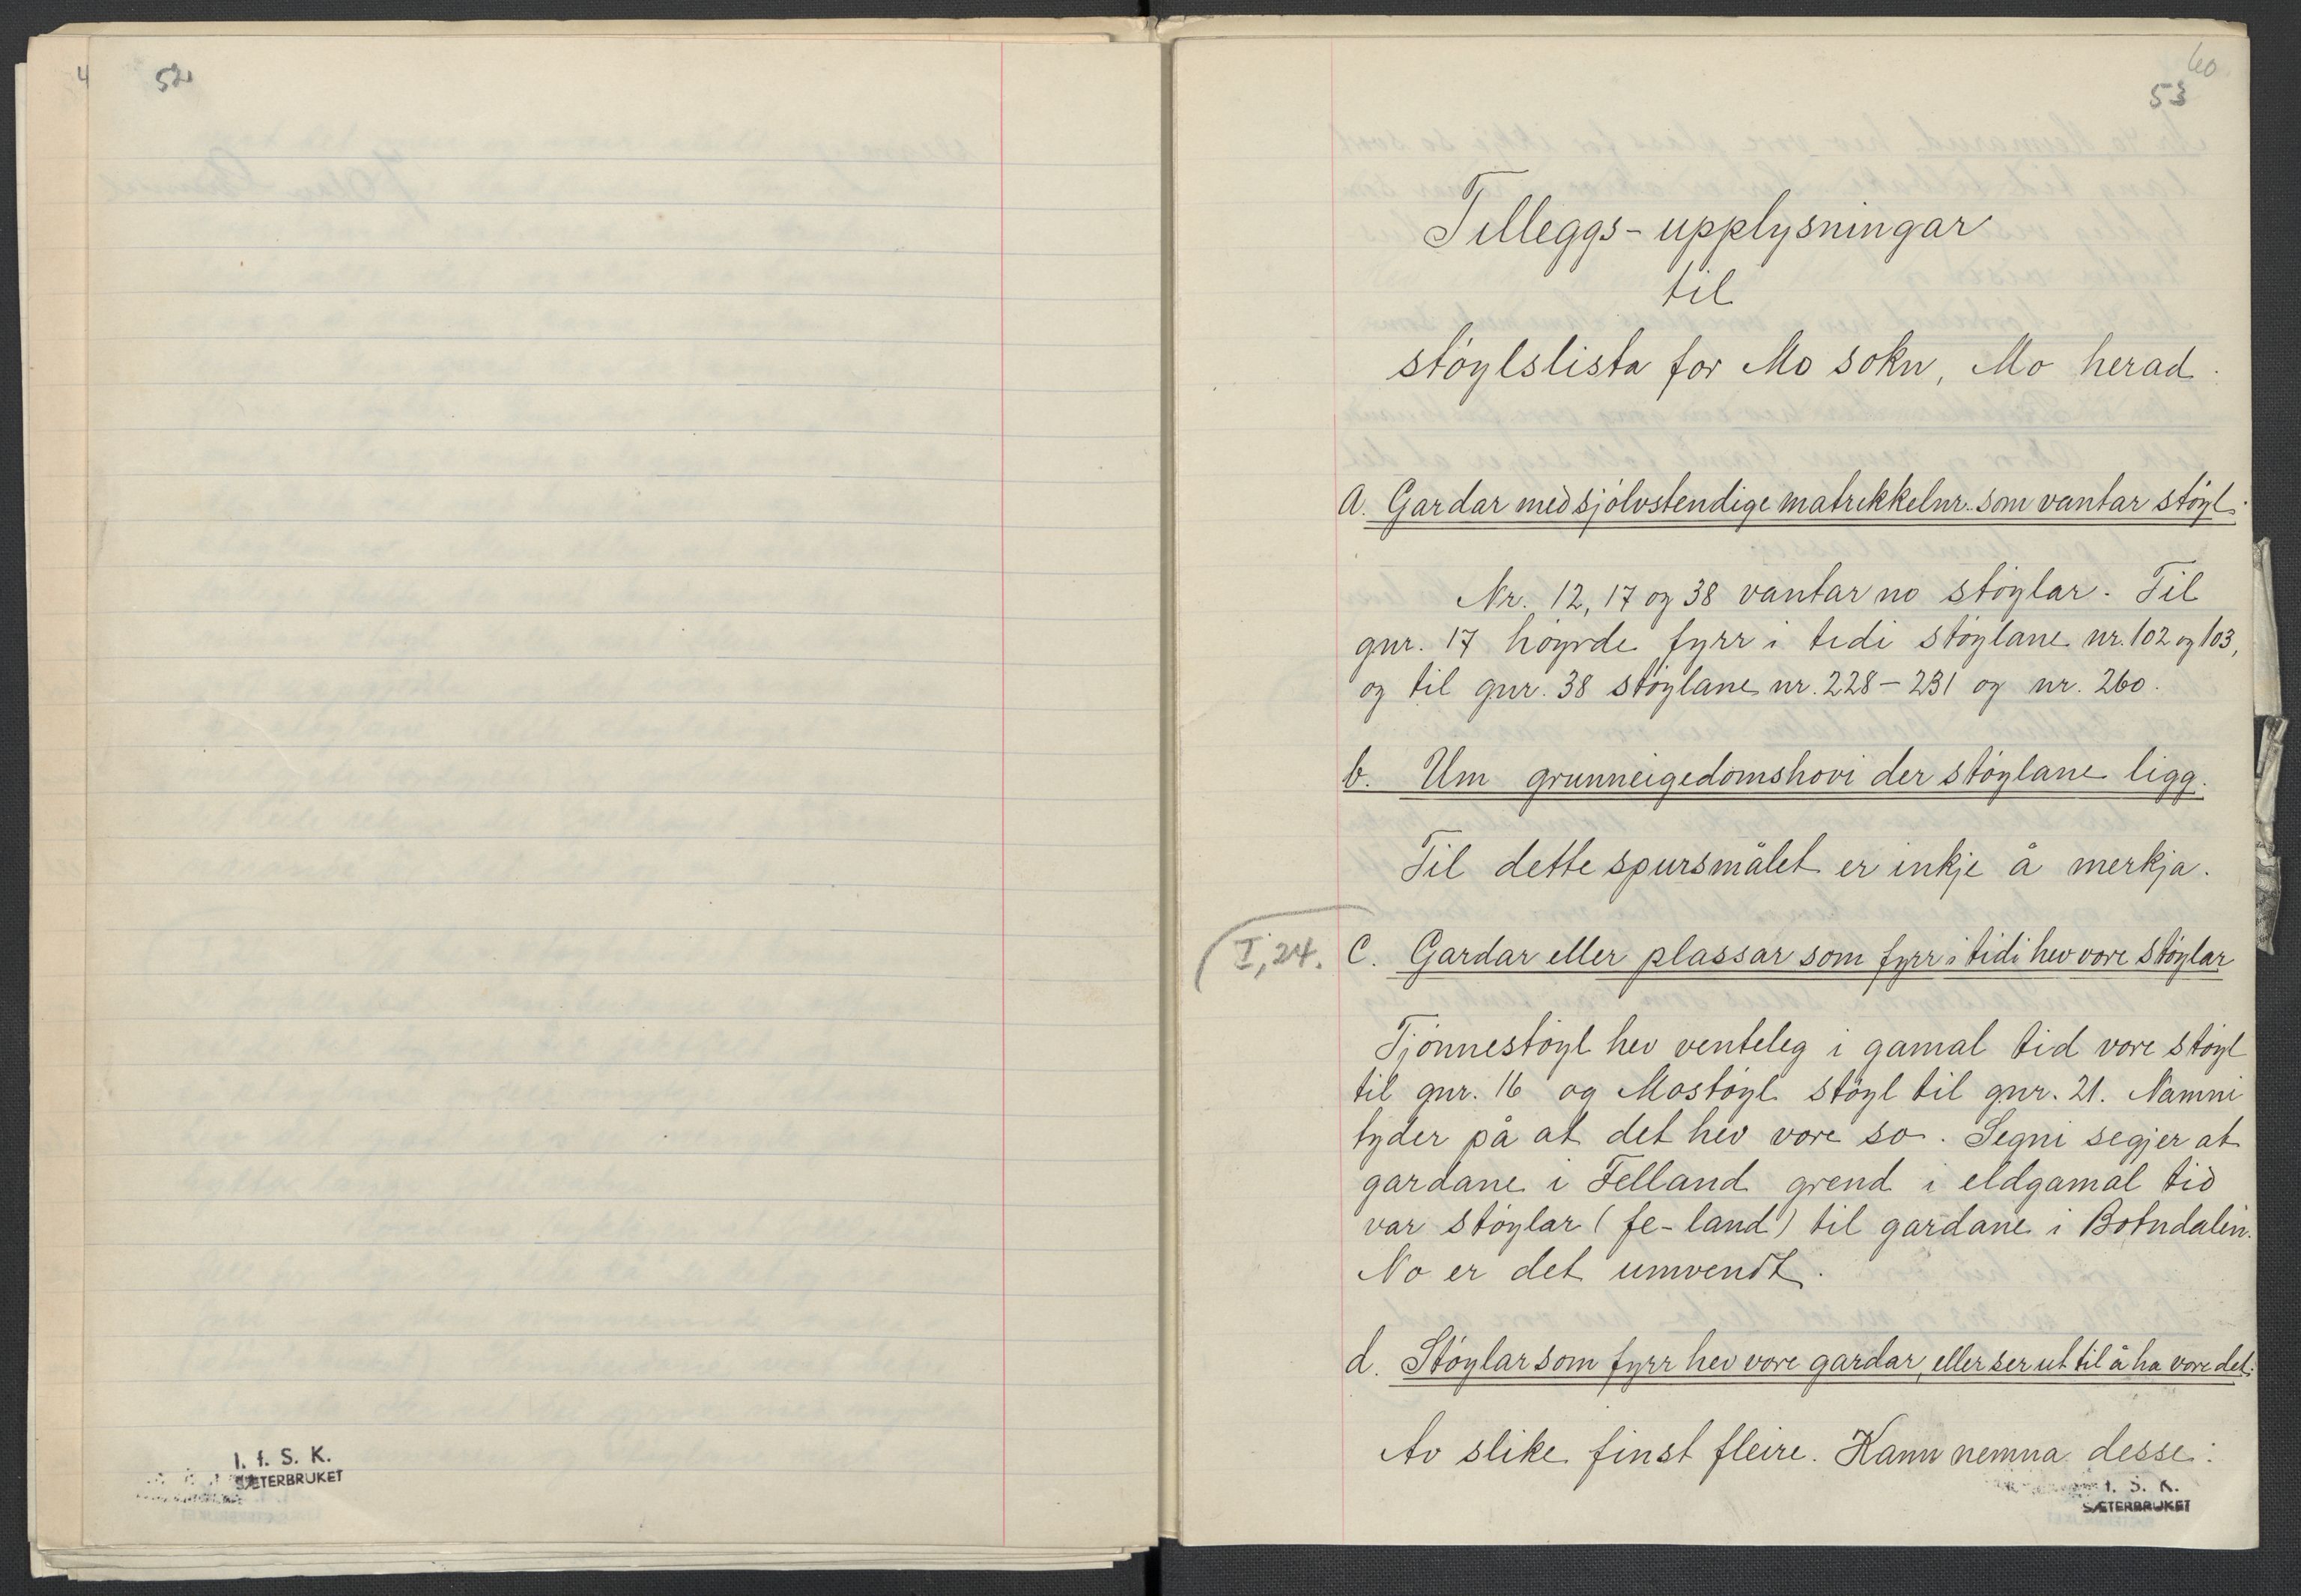 4
52
I. f. S. K.
SÆTERBRUKET
60
53
Tilleggs-upplysningar
til
støylslista for Mo sokn, Mo herad.
a. Gardar med sjølvstendige matrikkelnr. som vantar støyl.
Nr. 12, 17 og 38 vantar no støylar. Til
gnr. 17 høyrde fyrr i tidi støylane nr. 102 og 103,
og til gnr. 38 støylane nr. 228-231 og nr. 260.
b. Um grunneigedomshovi der støylane ligg.
Til dette spursmålet er inkje å merkja.
I, 24.
c. Gardar eller plassar som fyrr i tidi hev vore støylar
Tjønnestøyl hev venteleg i gamal tid vore støyl
til gnr. 16 og Mostøyl støyl til gnr. 21. Namni
tyder på at det hev vore so. Segni segjer at
gardane i Felland grend i eldgamal tid
var støylar (fe-land) til gardane i Botndalen.
No er det umvendt.
d. Støylar som fyrr hev vore gardar, eller ser ut til å ha vore det.
Av slike finst fleire. Kann nemna desse:
f. S. K.
SÆTERBRUKET